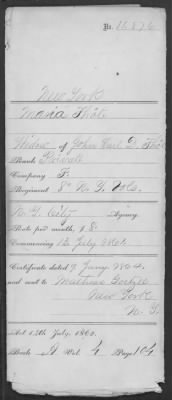 No. 16876
New York
Maria Thöt
Widow of John Carl D. Thöt
Rank Private
Company F.
Regiment 8th N. Y. Vols.
N. Y. City Agency.
Rate per month, $ 8.
Commencing 12 July 1862.
Certificate dated 9 Jany. 1864.
and sent to
New York
N. Y.
Act 14th July, 1862.
Book A Vol. 4 Page 104